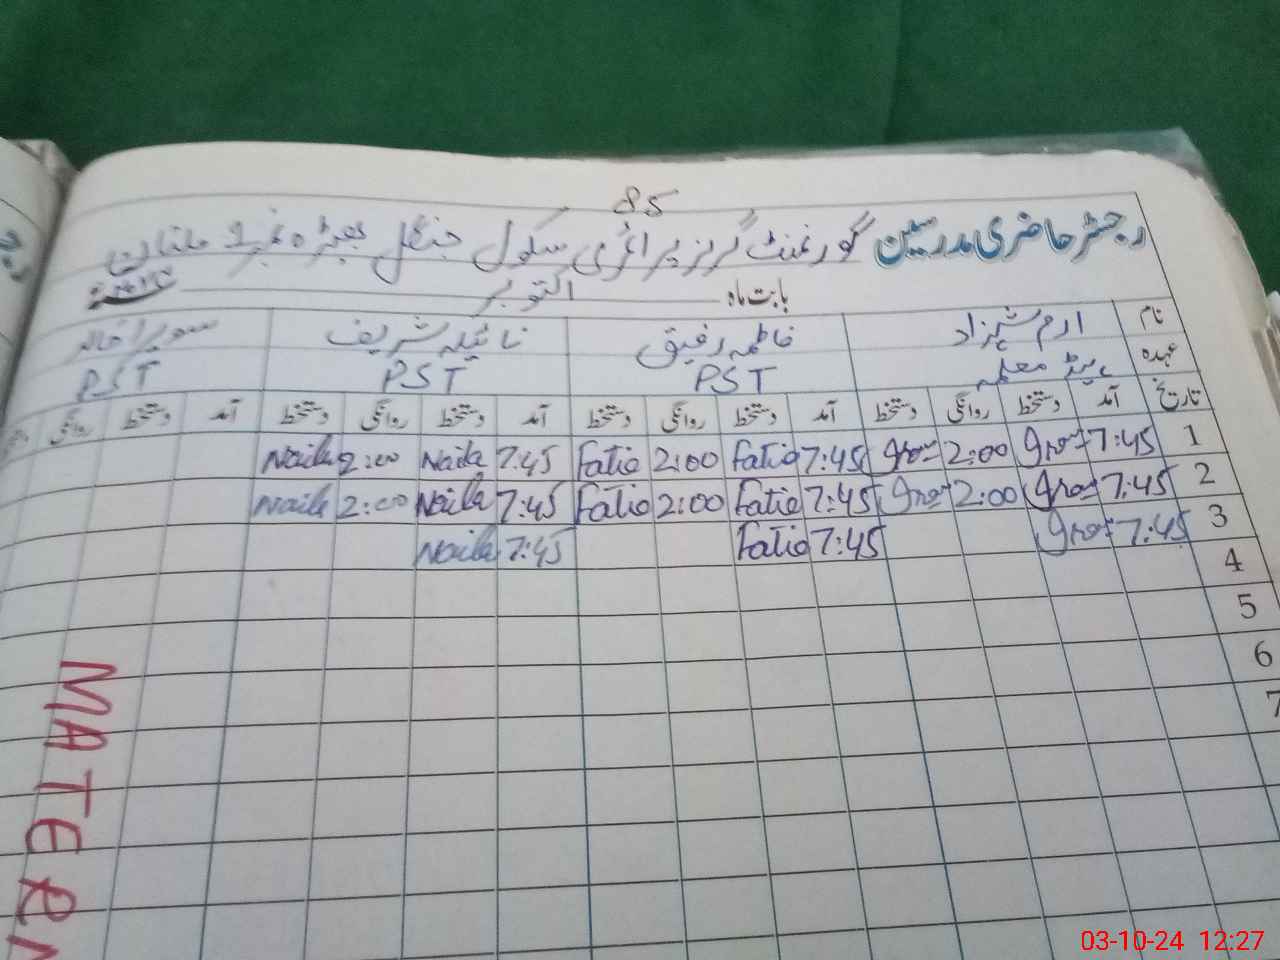 85
رجسٹر حاضری مدرسین گورنمنٹ گرلز پرائمری سکول جنگل
بابت ماہ اکتوبر
نام ارم شہزاد فاطمہ رفیق نائیلہ شریف سویرا خالد
عہدہ ہیڈ معلمہ PST PST PST
تاریخ آمد دستخط روانگی دستخط آمد دستخط روانگی دستخط آمد دستخط روانگی دستخط آمد دستخط روانگی
1 7:45 2:00 7:45 Fatio 2:00 Fatio 7:45 Naila 2:00 Naila
2 7:45 2:00 7:45 Fatio 2:00 Fatio 7:45 Naila 2:00 Naila
3 7:45 7:45 Fatio 7:45 Naila
4
5
6
7
MATER
03-10-24 12:27